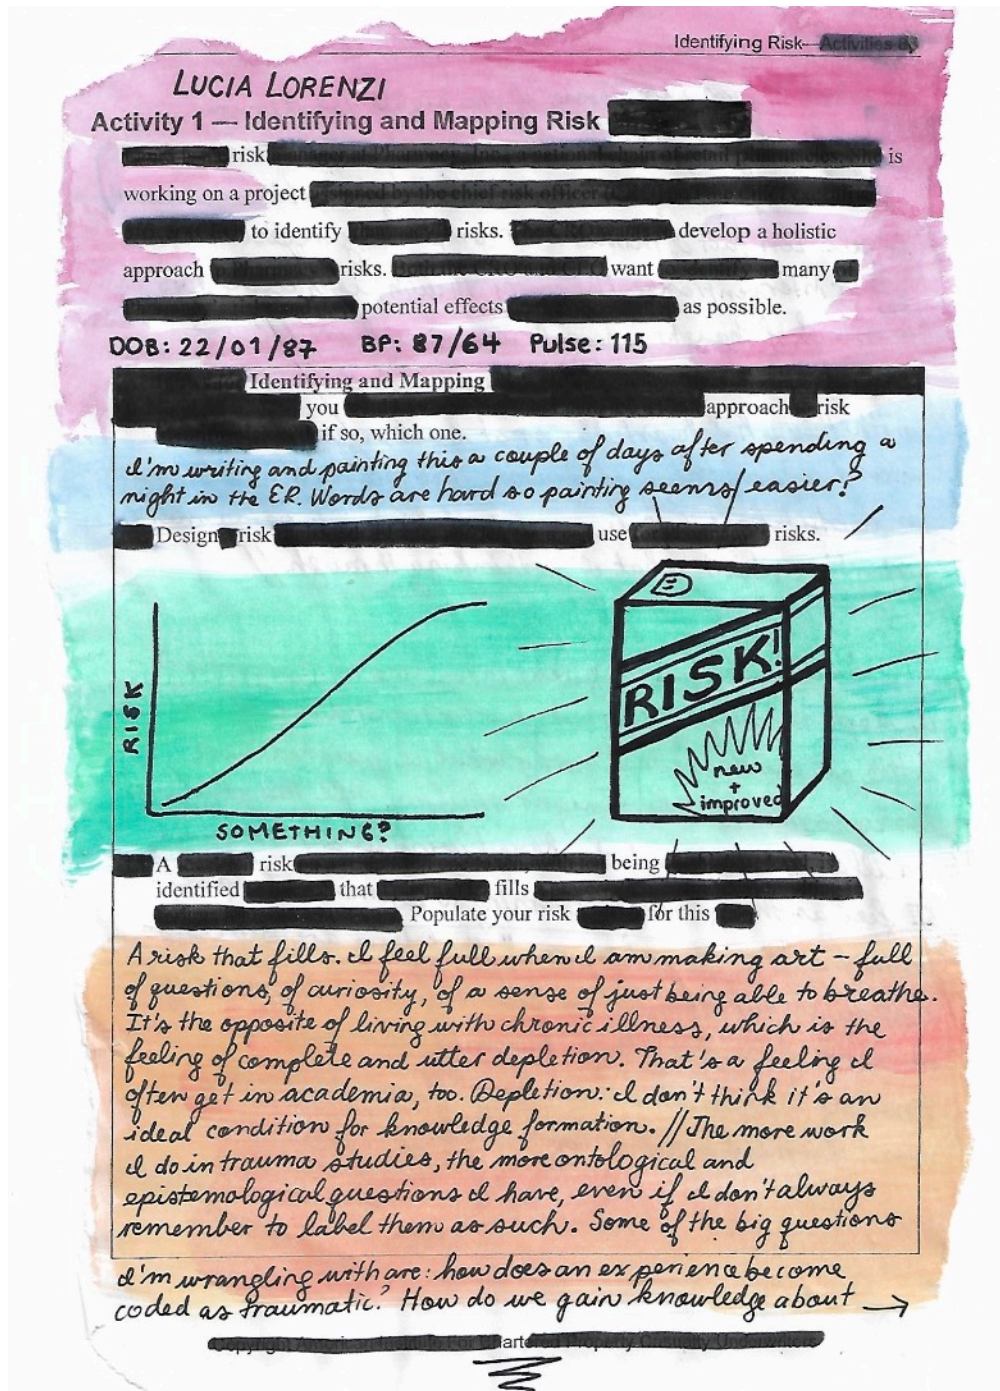 Identifying Risk—
LUCIA LORENZI
Activity 1 — Identifying and Mapping Risk
risk is
working on a project
to identify risks. develop a holistic
approach risks. want many
potential effects as possible.
DOB: 22/01/87 BP: 87/64 Pulse: 115
Identifying and Mapping
you approach risk
if so, which one.
I'm writing and painting this a couple of days after spending a
night in the ER. Words are hard so painting seems/easier?
Design risk use risks.
RISK
SOMETHING?
RISK!
new
+
improved
A risk being
identified that fills
Populate your risk for this
A risk that fills. I feel full when I am making art – full
of questions, of curiosity, of a sense of just being able to breathe.
It's the opposite of living with chronic illness, which is the
feeling of complete and utter depletion. That's a feeling I
often get in academia, too. Depletion: I don't think it's an
ideal condition for knowledge formation. // The more work
I do in trauma studies, the more ontological and
epistemological questions I have, even if I don't always
remember to label them as such. Some of the big questions
I'm wrangling with are: how does an experience become
coded as traumatic? How do we gain knowledge about →